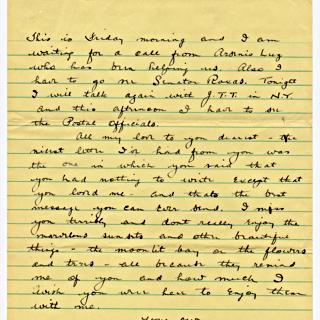 This is Friday morning and I am
waiting for a call from Arsenio Luz
who has been helping us. Also I
have to go see Senator Roxas. Tonight
I will talk again with J.T.T. in N.Y.
and this afternoon I have to see
the Postal Officials.
All my love to you dearest - the
nicest letter I've had from you was
the one in which you said that
you had nothing to write except that
you loved me - and thats the best
message you can ever send. I miss
you terribly and dont really enjoy the
marvelous sunsets and other beautiful
things - the moonlit bay or the flowers
and trees - all because they remind
me of you and how much I
wish you were here to enjoy them
with me.